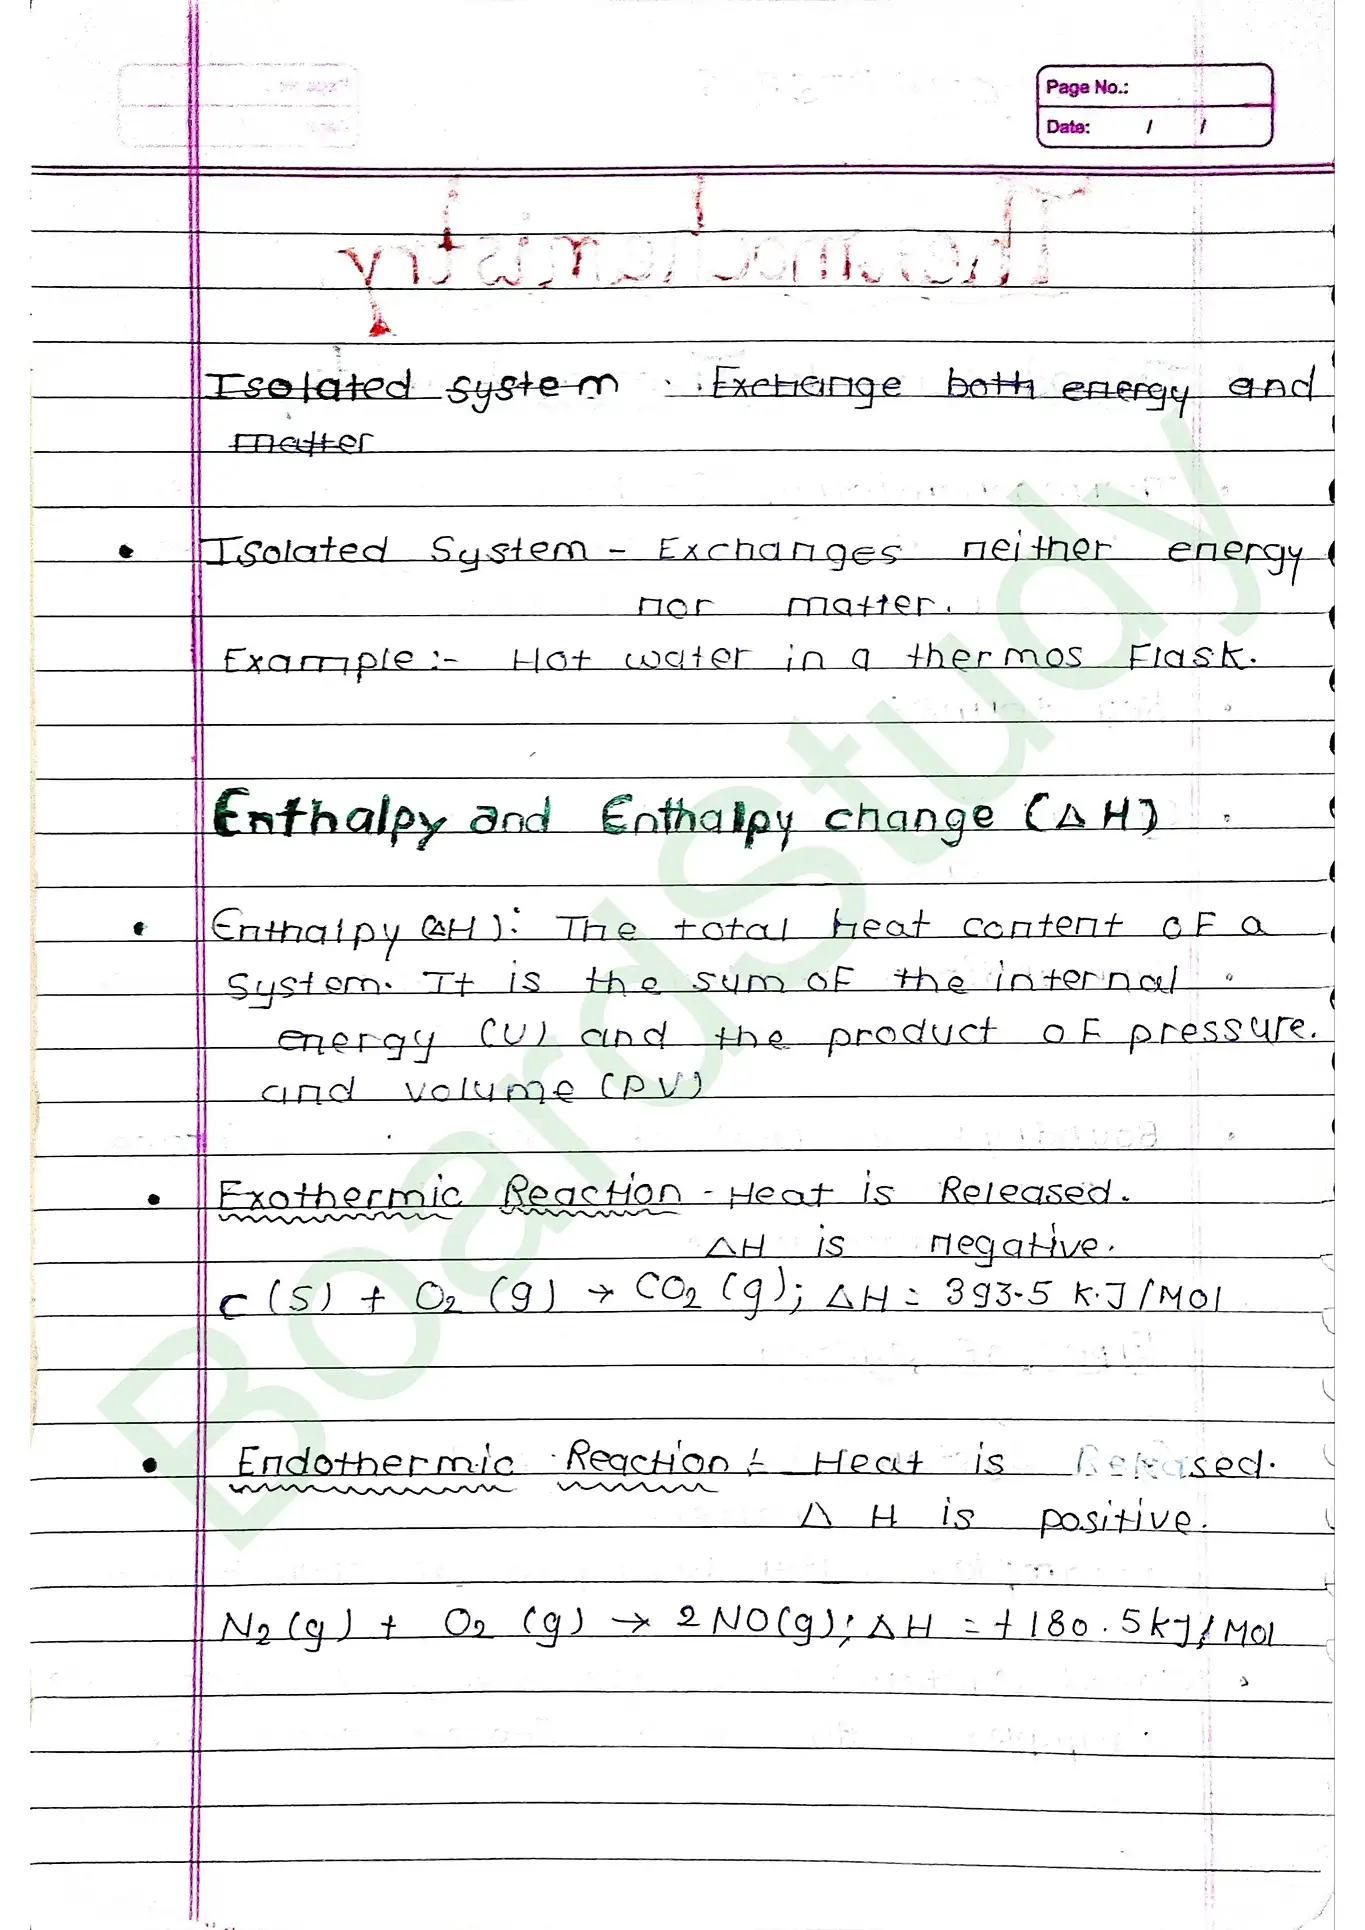 Page No.:
Date: / /
Thermochemistry
Isolated system Exchange both energy and
matter
• Isolated System - Exchanges neither energy
nor matter.
Example:- Hot water in a thermos Flask.
Enthalpy and Enthalpy change (ΔH)
• Enthalpy (ΔH): The total heat content OF a
System. It is the sum OF the internal
energy (U) and the product OF pressure.
and volume (PV)
• Exothermic Reaction - Heat is Released.
ΔH is negative.
C (S) + O2 (g) → CO2 (g); ΔH = 393.5 K.J/Mol
• Endothermic Reaction :- Heat is Released.
Δ H is positive.
N2 (g) + O2 (g) → 2NO(g); ΔH = +180.5kJ/Mol
BoardStudy